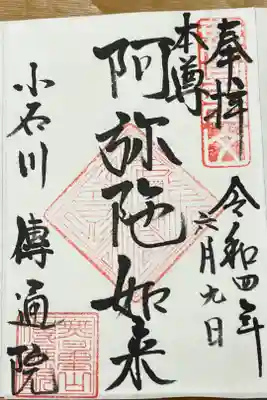 奉拝
令和四年
六月九日
本尊
阿弥陀如来
小石川 傳通院